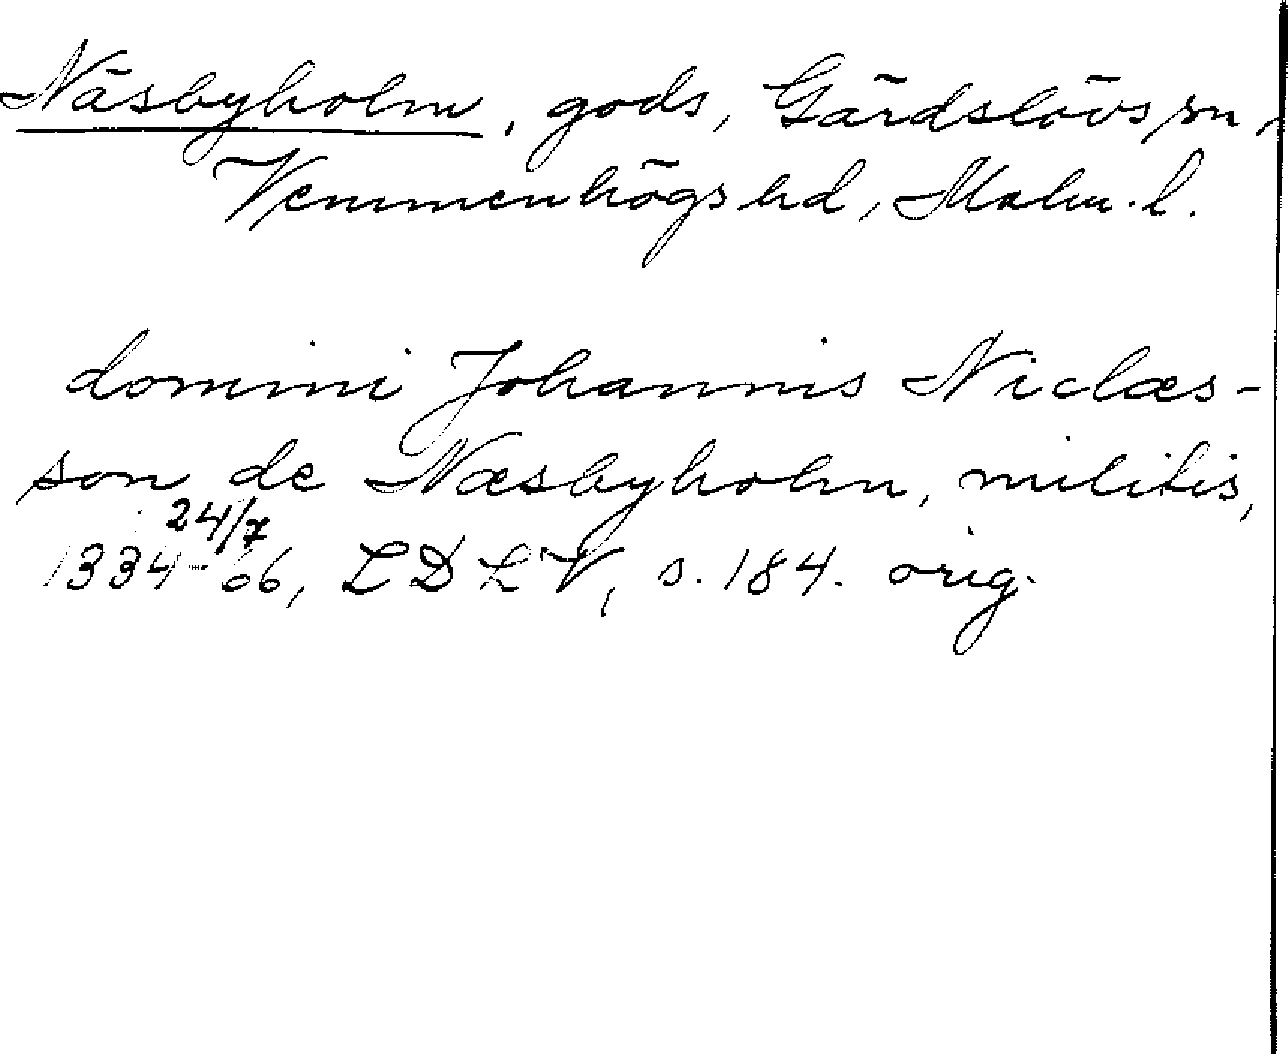 Näsbyholm, gods, Gärdslövs sn,
Vemmenhögs hd, Malm. l.
domini Johannis Niclæs-
son de Næsbyholm, militis,
24/7
1334-66, LDLV, s. 184. orig.